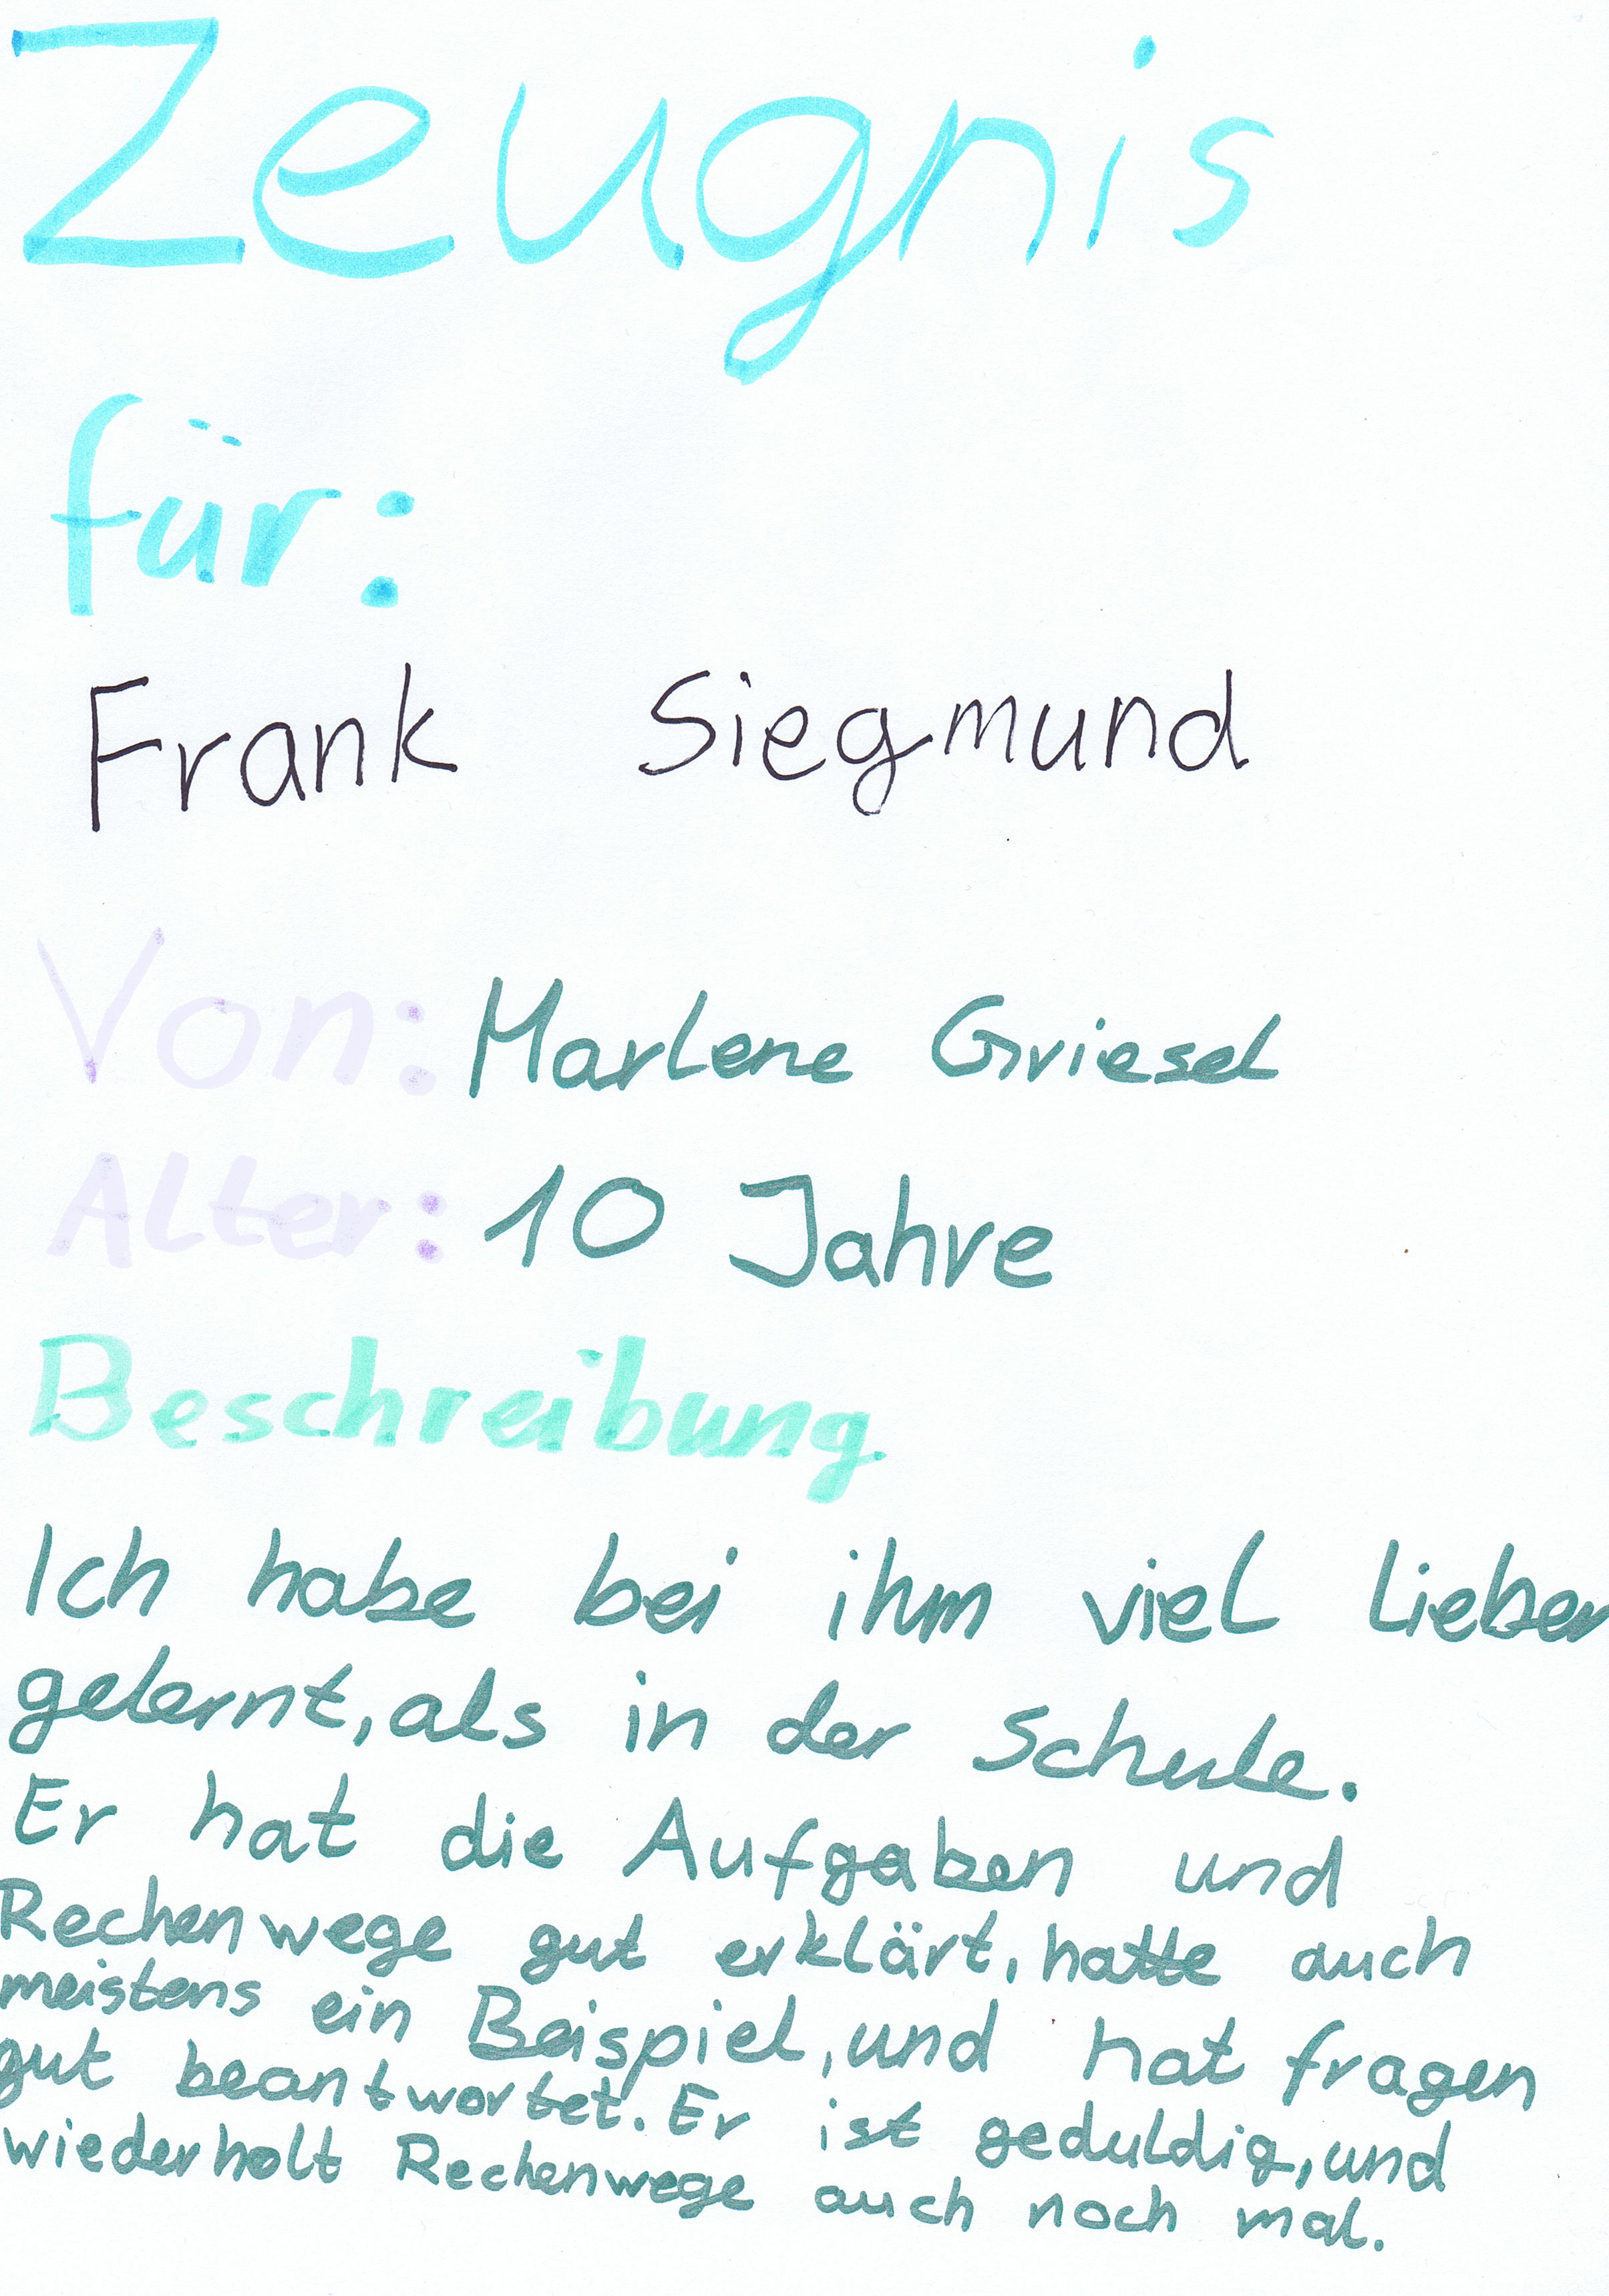 Zeugnis
für:
Frank Siegmund
Von: Marlene Griesel
Alter: 10 Jahre
Beschreibung
Ich habe bei ihm viel lieber
gelernt, als in der Schule.
Er hat die Aufgaben und
Rechenwege gut erklärt, hatte auch
meistens ein Beispiel, und hat fragen
gut beantwortet. Er ist geduldig, und
wiederholt Rechenwege auch noch mal.